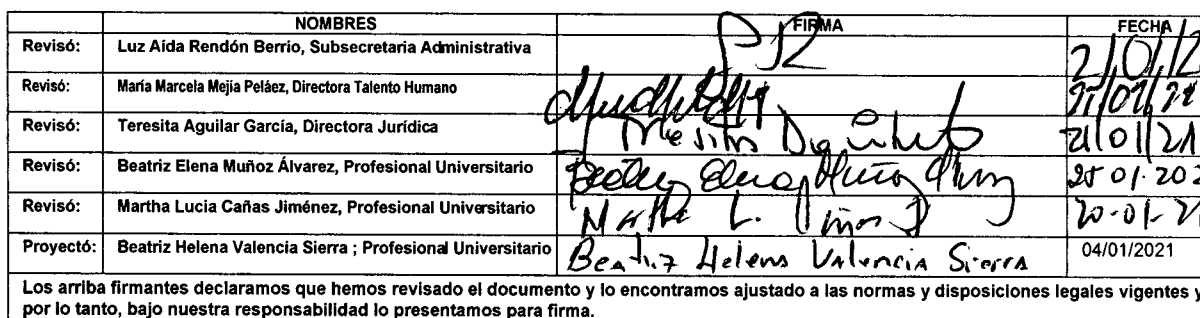 NOMBRES FIRMA FECHA
Revisó: Luz Aída Rendón Berrio, Subsecretaria Administrativa 21/01/2
Revisó: María Marcela Mejía Peláez, Directora Talento Humano
Revisó: Teresita Aguilar García, Directora Jurídica 21/01/21
Revisó: Beatriz Elena Muñoz Álvarez, Profesional Universitario Beatriz Elena Muñoz 25 01.202
Revisó: Martha Lucia Cañas Jiménez, Profesional Universitario Martha L. 20-01-21
Proyectó: Beatriz Helena Valencia Sierra ; Profesional Universitario Beatriz Helena Valencia Sierra 04/01/2021
Los arriba firmantes declaramos que hemos revisado el documento y lo encontramos ajustado a las normas y disposiciones legales vigentes y
por lo tanto, bajo nuestra responsabilidad lo presentamos para firma.